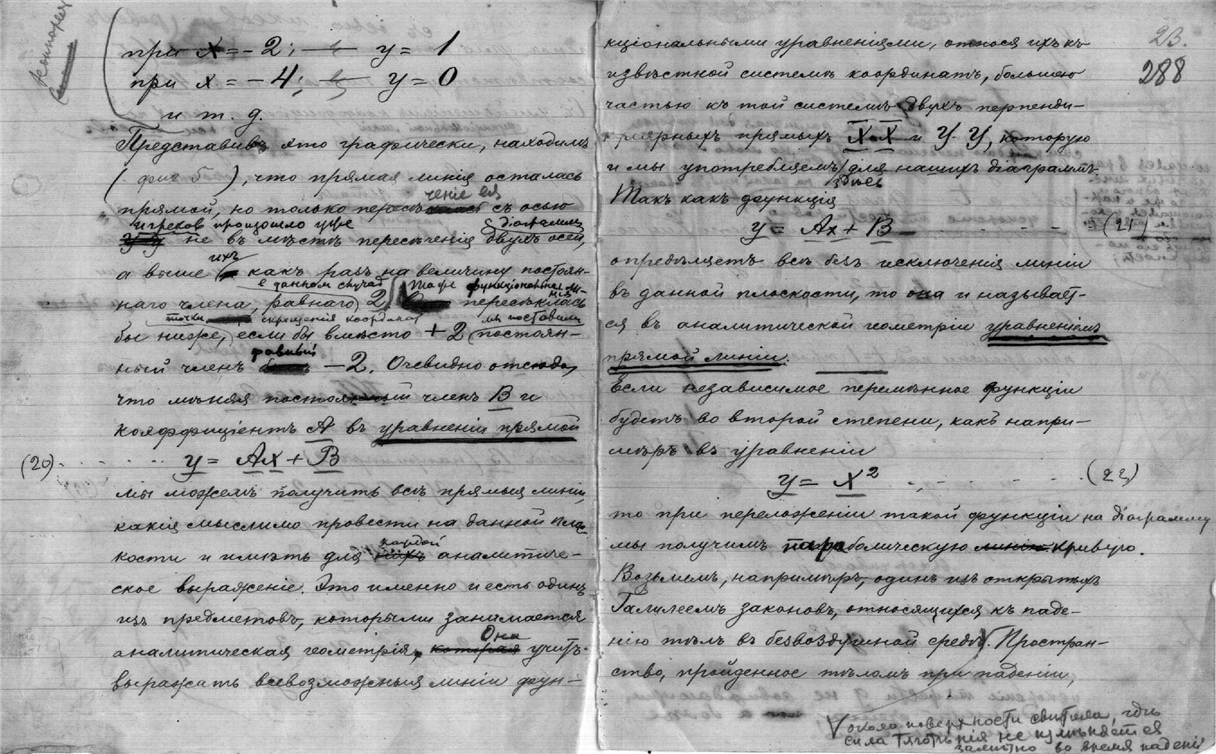 при x = -2; y = 1
при x = -4; y = 0
и т. д.
Представивъ это графически, находимъ
( фиг 5 ), что прямая линія осталась
прямой, но только пересѣченіе ея съ осью
игрековъ произошло уже не въ мѣстѣ пересѣченія двухъ осей діаграммы,
а выше ихъ какъ разъ на величину постоян-
наго члена, равнаго въ данномъ случаѣ 2. Тоже функціональная линія пересѣклась
бы ниже точки скрещенія координатъ, если бы вмѣсто + 2 мы поставили постоян-
ный членъ равный -2. Очевидно отсюда,
что мѣняя постоянный членъ B и
коэффиціентъ A въ уравненіи прямой
(20) y = Ax + B
мы можемъ получить всѣ прямыя линіи,
какія мыслимо провести на данной плос-
кости и имѣть для каждой аналитиче-
ское выраженіе. Это именно и есть одинъ
изъ предметовъ, которыми занимается
аналитическая геометрія. Она учитъ
выражать всевозможныя линіи фун-
23.
288
кціональными уравненіями, относя ихъ къ
извѣстной системѣ координатъ, большею
частью къ той системѣ двухъ перпенди-
кулярныхъ прямыхъ X X и У У, которую
и мы употребляемъ здѣсь для нашихъ діаграммъ
Такъ какъ функція
y = Ax + B (21)
опредѣляетъ всѣ безъ исключенія линіи
въ данной плоскости, то она и называет-
ся въ аналитической геометріи уравненіемъ
прямой линіи.
Если независимое перемѣнное функціи
будетъ во второй степени, какъ напри-
мѣръ въ уравненіи
y = x² (22)
то при переложеніи такой функціи на діаграмму
мы получимъ параболическую кривую.
Возьмемъ, напримѣръ, одинъ изъ открытыхъ
Галилеемъ законовъ, относящихся къ паде-
нію тѣлъ въ безвоздушной средѣ. Простран-
ство, пройденное тѣломъ при паденіи,
V около поверхности свѣтила, гдѣ
сила тяготѣнія не измѣняется
замѣтно во время паденія